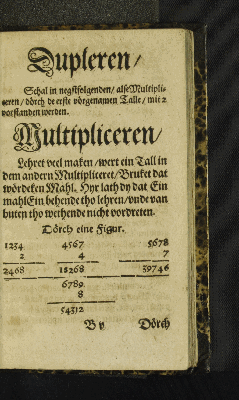 Dupleren/
Schal in negstfolgenden/ alse Multipli-
ceren/ dörch de erste vörgenamen Talle/ mit 2
vorstanden werden.
Multipliceren/
Lehret veel maken/ wert ein Tall in
dem andern Multipliceret/ Bruket dat
wördeken Mahl. Hyr lath dy dat Ein
mahl Ein behende tho lehren/ vnde van
buten tho wethende nicht vordreten.
Dörch eine Figur.
1234 4567 5678
2 4 7
2468 18268 39746
6789
8
54312
B v Dörch